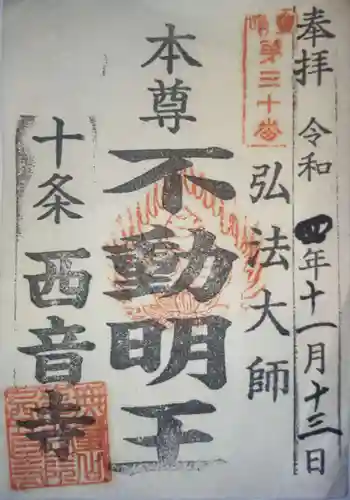 奉拝 令和四年十一月十三日
第三十番
弘法大師
本尊
不動明王
十条 西音寺